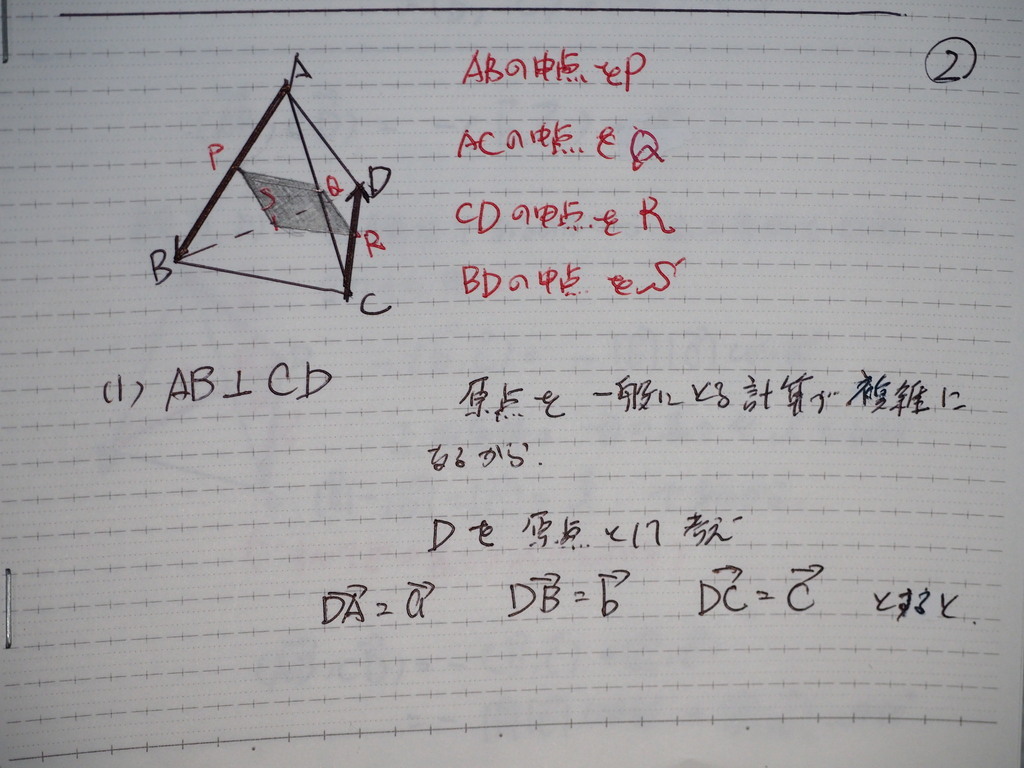 ②
A
P
Q
D
S
R
B
C
ABの中点をP
ACの中点をQ
CDの中点をR
BDの中点をS
(1) AB⊥CD
原点を一般にとる計算が複雑に
なるから.
Dを原点として考え
DA→=a→ DB→=b→ DC→=c→ とすると.